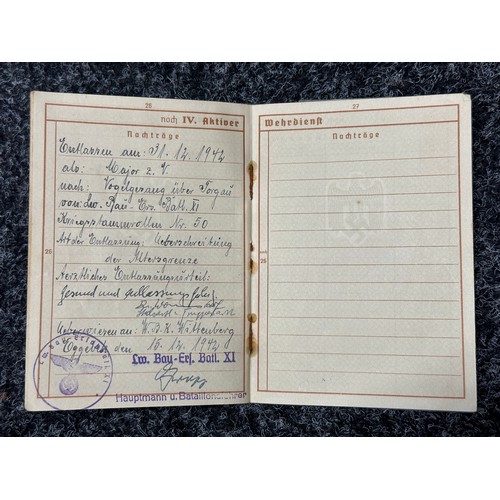 26
noch IV. Aktiver
Nachträge
Entlassen am: 31.12.1942
als: Major z. V.
nach: Vogelgesang über Torgau
von: Lw. Bau-Ers. Batl. XI
Kriegsstammrollen Nr. 50
Art der Entlassung: Ueberschreibung
der Altersgrenze
Aerztliches Entlassungsurteil:
Gesund und
Ueberwiesen an: W.B.K. Wittenberg
den 15.12.1942
Lw. Bau-Ers. Batl. XI
Hauptmann u. Bataillonsführer
27
Wehrdienst
Nachträge